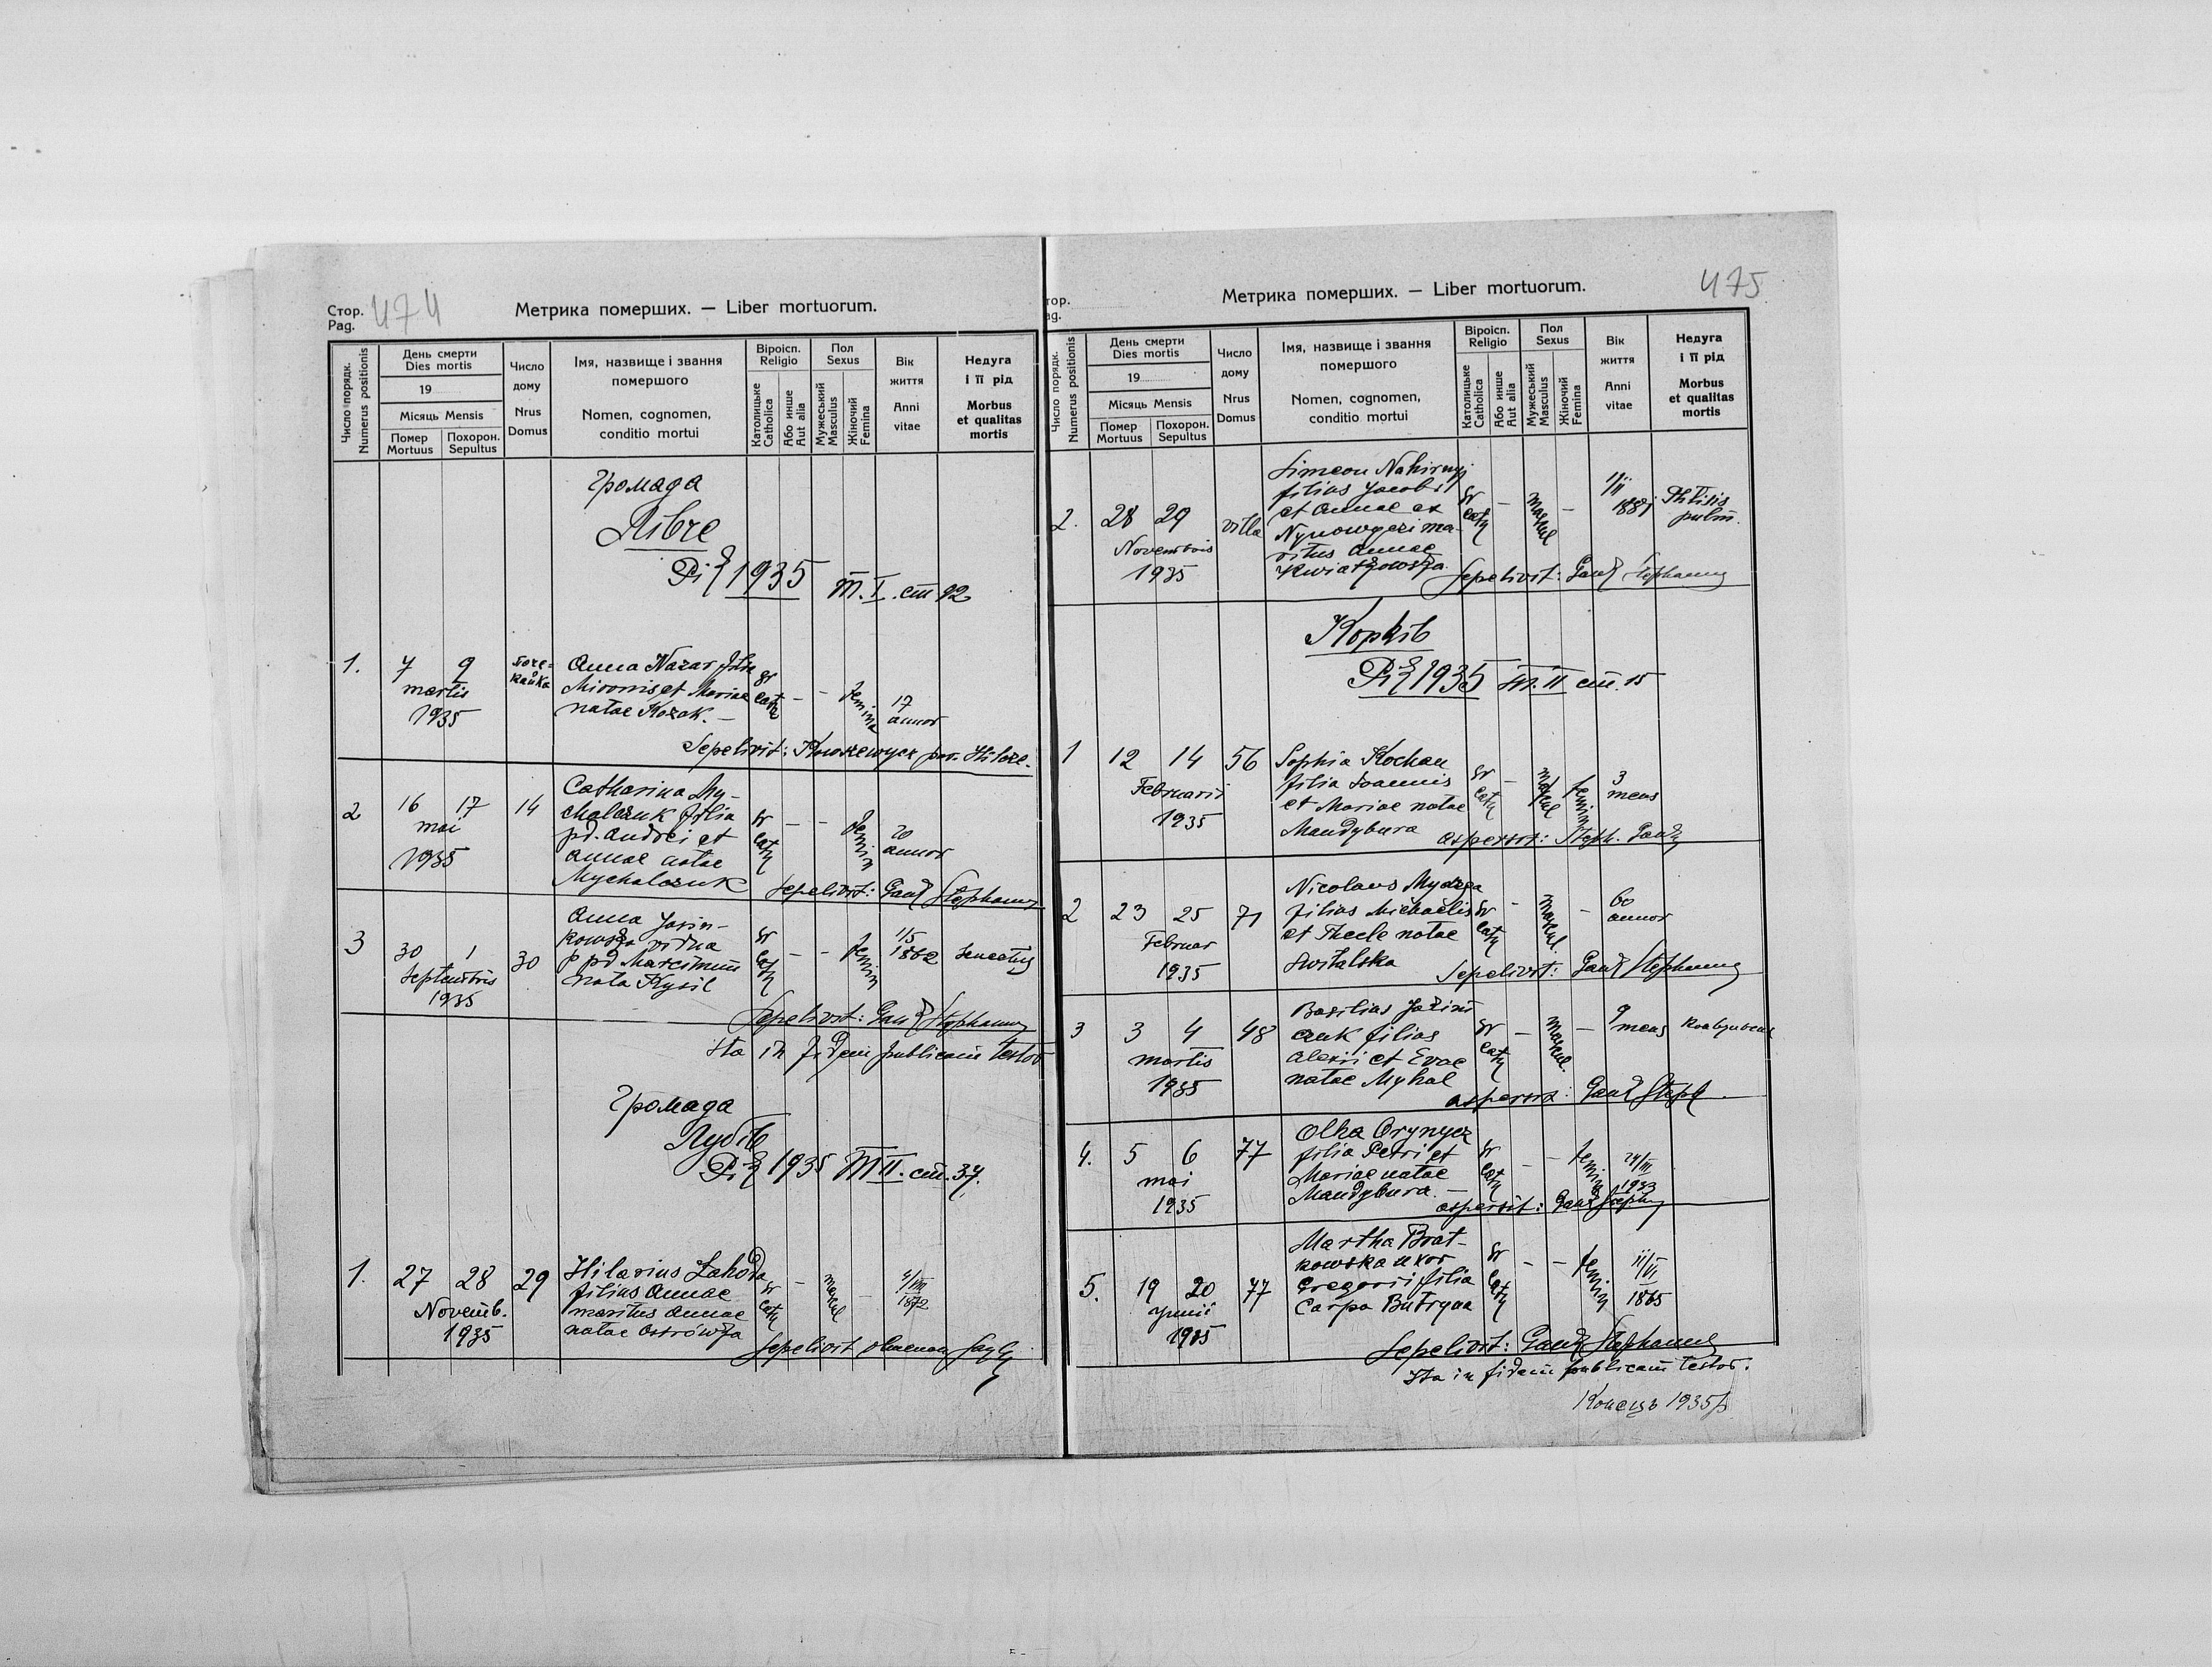 Стор.
Pag.
474
Метрика померших. — Liber mortuorum.
Число порядк.
Numerus positionis
День смерти
Dies mortis
19
Місяць Mensis
Помер
Mortuus
Похорон.
Sepultus
Число
дому
Nrus
Domus
Імя, назвище і звання
помершого
Nomen, cognomen,
conditio mortui
Віроісп.
Religio
Католицьке
Catholica
Або инше
Aut alia
Пол
Sexus
Мужеський
Masculus
Жіночий
Femina
Вік
життя
Anni
vitae
Недуга
і її рід
Morbus
et qualitas
mortis
Громада
1935 т. I. ст 92
1. 7 9
martis
1935
Anna Nazar filia
Mironis et Mariae
natae Kozak. —
gr
cath
— —
femina
17
annor
Sepelivit:
2 16 17 14
mai
1935
Catharina My-
chalczuk filia
pd. Andrei et
Annae natae
Mychalczuk
gr
cath
— —
femin
20
annor
Sepelivit: Stephanus
3 30 1 30
Septembris
1935
Anna Jasin-
kowska vidua
p pd Marcimum
nata Kysil
gr
cath
— —
femin
1/5
1862
senectus
Sepelivit: Stephanus
Ita in fidem publicam testor
Громада
1935 т II. ст. 37.
1. 27 28 29
Novemb.
1935
Hilarius Zahoda
filius Annae
maritus Annae
natae Ostrówska
gr
cath
—
mascul
—
1872
Sepelivit
тор.
ag.
Метрика померших. — Liber mortuorum.
475
Число порядк.
Numerus positionis
День смерти
Dies mortis
19
Місяць Mensis
Помер
Mortuus
Похорон.
Sepultus
Число
дому
Nrus
Domus
Імя, назвище і звання
помершого
Nomen, cognomen,
conditio mortui
Віроісп.
Religio
Католицьке
Catholica
Або инше
Aut alia
Пол
Sexus
Мужеський
Masculus
Жіночий
Femina
Вік
життя
Anni
vitae
Недуга
і її рід
Morbus
et qualitas
mortis
2. 28 29 villa
Novembris
1935
Simeon Nahirnyj
filius Jacobi
et Annae ex
ma-
ritus Annae
Kwiatkowska
gr
cath
—
mascul
—
Phtisis
pulm.
Sepelivit: Stephanus
Корків
1935 т. II ст. 15
1 12 14 56
Februarii
1935
Sophia Kochan
filia Ioannis
et Mariae natae
Mandybura
gr
cath
—
femin
3
mens
aspersit: Steph.
2 23 25 71
Februar
1935
Nicolaus
filius Michaelis
et Thecle natae
Switalska
gr
cath
—
mascul.
—
60
annor
Sepelivit: Stephanus
3 3 4 48
martis
1935
Basilius
czuk filius
Alexii et Evae
natae Myhal
gr
cath
—
mascul.
—
9
mens
4. 5 6 77
mai
1935
Olha Orynycz
filia Petri et
Mariae natae
Mandybura. —
gr
cath
— —
femina
24/III
1933
aspersit:
5. 19 20 77
Junii
1935
Martha Brat-
kowska uxor
Gregorii filia
Carpa Butryna
gr
cath
— —
femin
11/VI
1865
Sepelivit: Stephanus
Ita in fidem publicam testor.
Конець 1935р